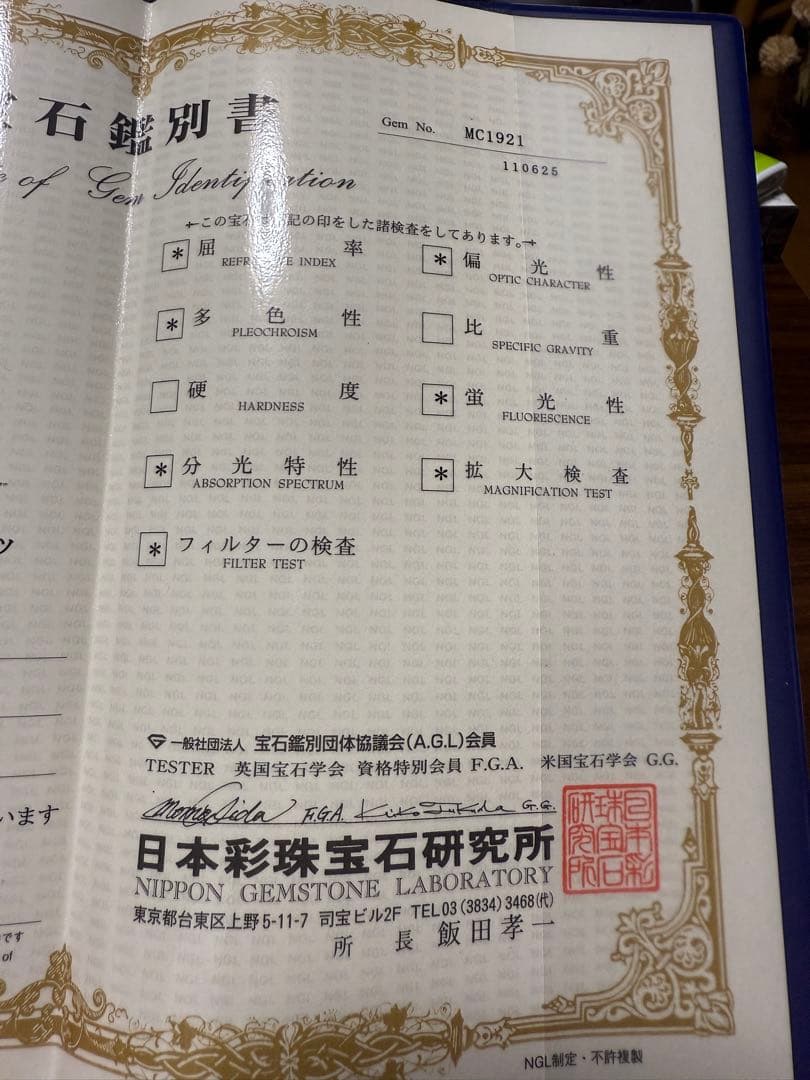 石鑑別書
Gem No. MC1921
of Gem Identification
110625
この宝石 記の印をした諸検査をしてあります。
* 屈 率
REFR INDEX
* 偏光性
OPTIC CHARACTER
* 多色性
PLEOCHROISM
比重
SPECIFIC GRAVITY
硬度
HARDNESS
* 蛍光性
FLUORESCENCE
* 分光特性
ABSORPTION SPECTRUM
* 拡大検査
MAGNIFICATION TEST
ツ
* フィルターの検査
FILTER TEST
一般社団法人 宝石鑑別団体協議会(A.G.L)会員
TESTER 英国宝石学会 資格特別会員 F.G.A. 米国宝石学会 G.G.
います
F.G.A. G.G.
日本彩珠宝石研究所
日本彩珠宝石研究所
NIPPON GEMSTONE LABORATORY
東京都台東区上野5-11-7 司宝ビル2F TEL03(3834)3468(代)
です
of
所長 飯田孝一
NGL制定・不許複製